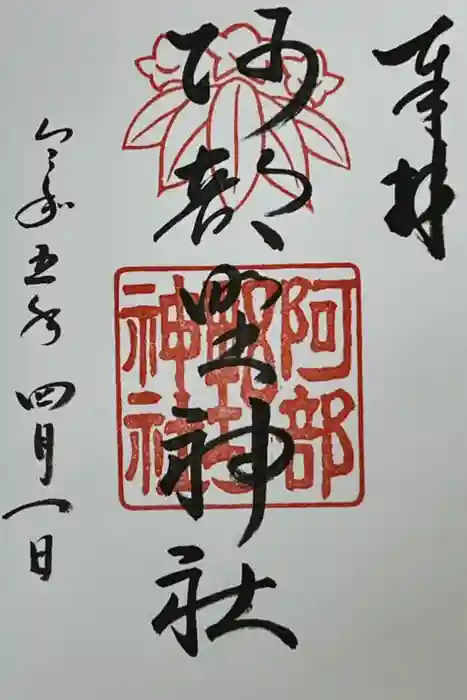 奉拝
阿部野神社
阿部
野
神社
令和五年四月一日